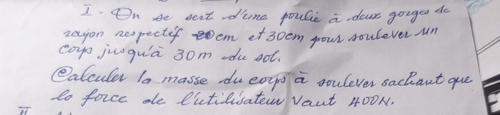 I - On se sert d'une poulie à deux gorges de
rayon respectif 20cm et 30cm pour soulever un
corps jusqu'à 30m du sol.
Calculer la masse du corps à soulever sachant que
la force de l'utilisateur vaut 400N.
II